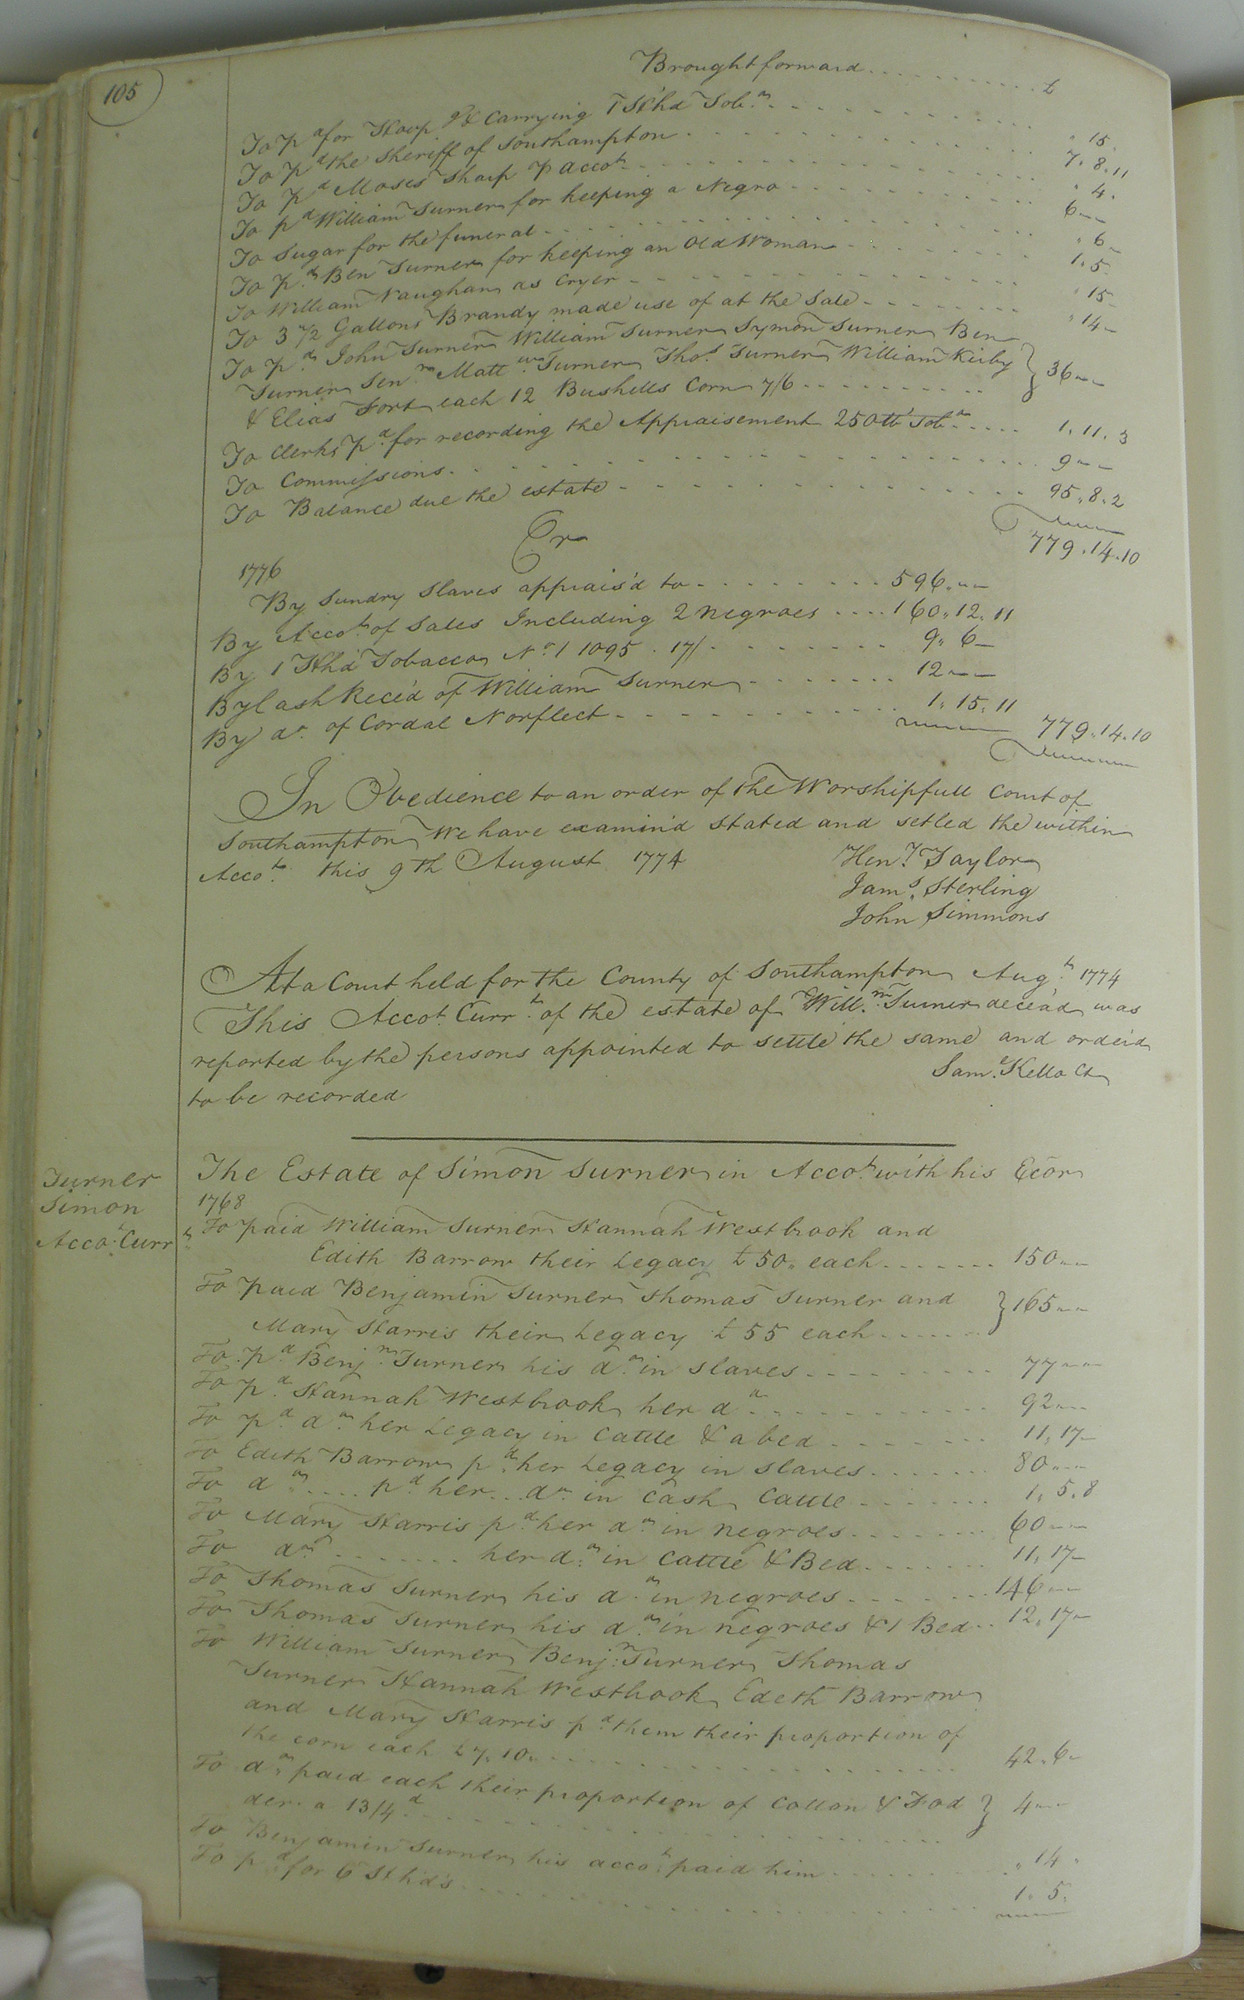 105
Brought forward £
To pd for Hoop &c Carrying 1 Hhd Tobo. " 15.
To pd the Sheriff of Southampton 7. 8. 11
To pd Moses Sharp p Accot " 4.
To pd William Turner for keeping a Negro 6 --
To Sugar for the funeral " 6 -
To pd Ben Turner for keeping an Old Woman 1. 5.
To William Vaughan as Cryer " 15 -
To 3 1/2 Gallons Brandy made use of at the Sale " 14 -
To pd John Turner William Turner Symon Turner Ben
Turner Senr Mattw Turner Thos Turner William Kirby } 36 --
& Elias Fort each 12 Bushells Corn 7/6
To Clerks pd for recording the Appraisement 250 lb Tobo 1. 11. 3
To Commissions 9 --
To Balance due the estate 95. 8. 2
779. 14. 10
Cr
1776
By Sundry Slaves apprais'd to 596. --
By Accot of Sales Including 2 negroes 160. 12. 11
By 1 Hhd Tobacco No 1 1095 . 17/ 9. 6 -
By Cash Rece'd of William Turner 12 --
By do of Cordal Norfleet 1. 15. 11
779. 14. 10
In Obedience to an order of the Worshipfull Court of
Southampton We have examin'd stated and setled the within
Accot. this 9th August 1774
Heny Taylor
Jams Sterling
John Simmons
At a Court held for the County of Southampton Augt 1774
This Accot Currt of the estate of Willm Turner deceas'd was
reported by the persons appointed to settle the same and order'd
to be recorded
Saml Kello Ct
Turner
Simon
Accot Currt
The Estate of Simon Turner in Accot with his Ecor
1768
To paid William Turner Hannah Westbrook and
Edith Barrow their Legacy £50. each 150 --
To paid Benjamin Turner Thomas Turner and
Mary Harris their Legacy £55 each } 165 --
To pd Benjn Turner his do in slaves 77 --
To pd Hannah Westbrook her do 92 --
To pd do her Legacy in Cattle & a bed 11. 17 -
To Edith Barrow pd her Legacy in slaves 80 --
To do pd her do in Cash Cattle 1. 5. 8
To Mary Harris pd her do in negroes 60 --
To do her do in Cattle & Bed 11. 17 -
To Thomas Turner his do in negroes 146 --
To Thomas Turner his do in negroes & 1 Bed 12. 17 -
To William Turner Benjn Turner Thomas
Turner Hannah Westbrook Edeth Barrow
and Mary Harris pd them their proportion of
the corn each £7. 10 42. 6 -
To do paid each their proportion of Cotton & Fod
der a 13/4d } 4 --
To Benjamin Turner his accot paid him " 14 "
To pd for 6 Hhds 1. 5.